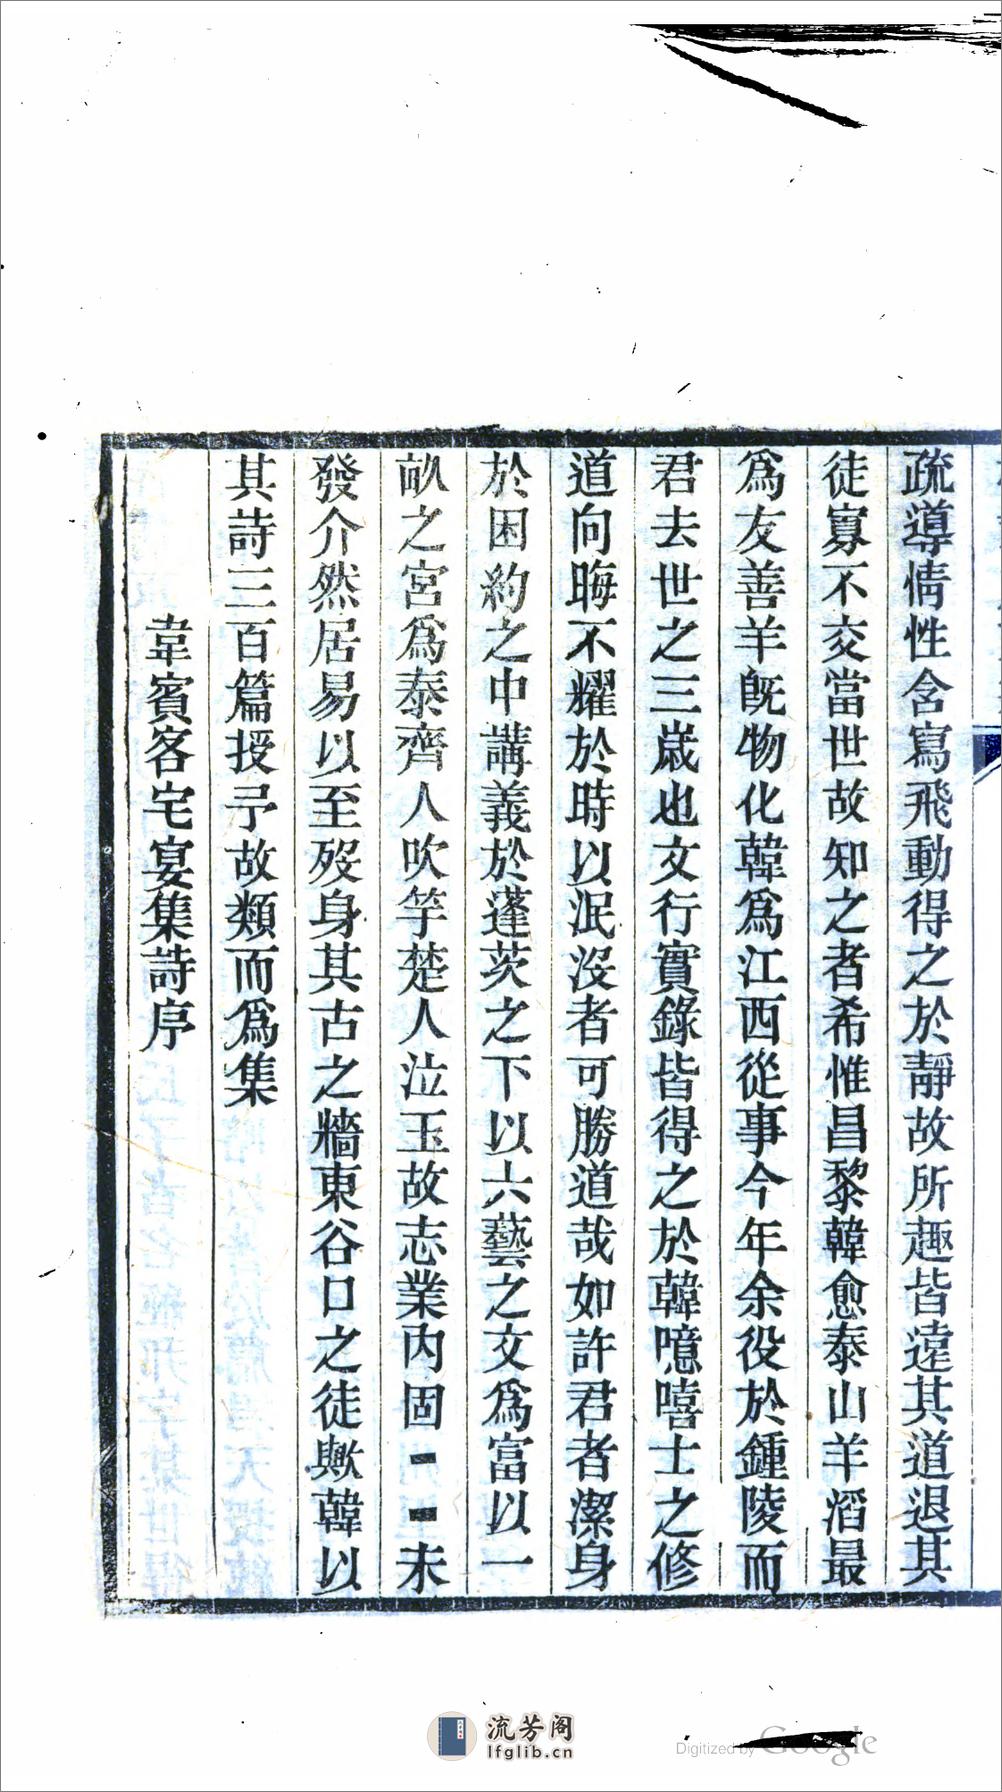 疏導情性含寫飛動得之於靜故所趣皆遠其道退其
徒寡不交當世故知之者希惟昌黎韓愈泰山羊滔最
爲友善羊旣物化韓爲江西從事今年余役於鍾陵而
君去世之三歲也文行實錄皆得之於韓噫嘻士之修
道向晦不耀於時以泯沒者可勝道哉如許君者潔身
於困約之中講義於蓬茨之下以六藝之文爲富以一
畝之宮爲泰齊人吹竽楚人泣玉故志業內固 未
發介然居易以至歿身其古之牆東谷口之徒歟韓以
其詩三百篇授予故類而爲集
韋賓客宅宴集詩序
流芳阁
lfglib.cn
Digitized by Google